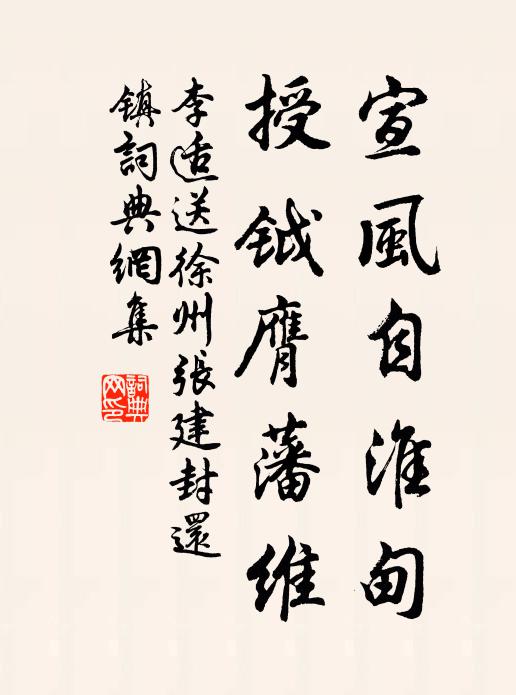 宣風自淮甸
授鉞膺藩維
李适送徐州張建封還
鎮詞典網集
詞典
网印